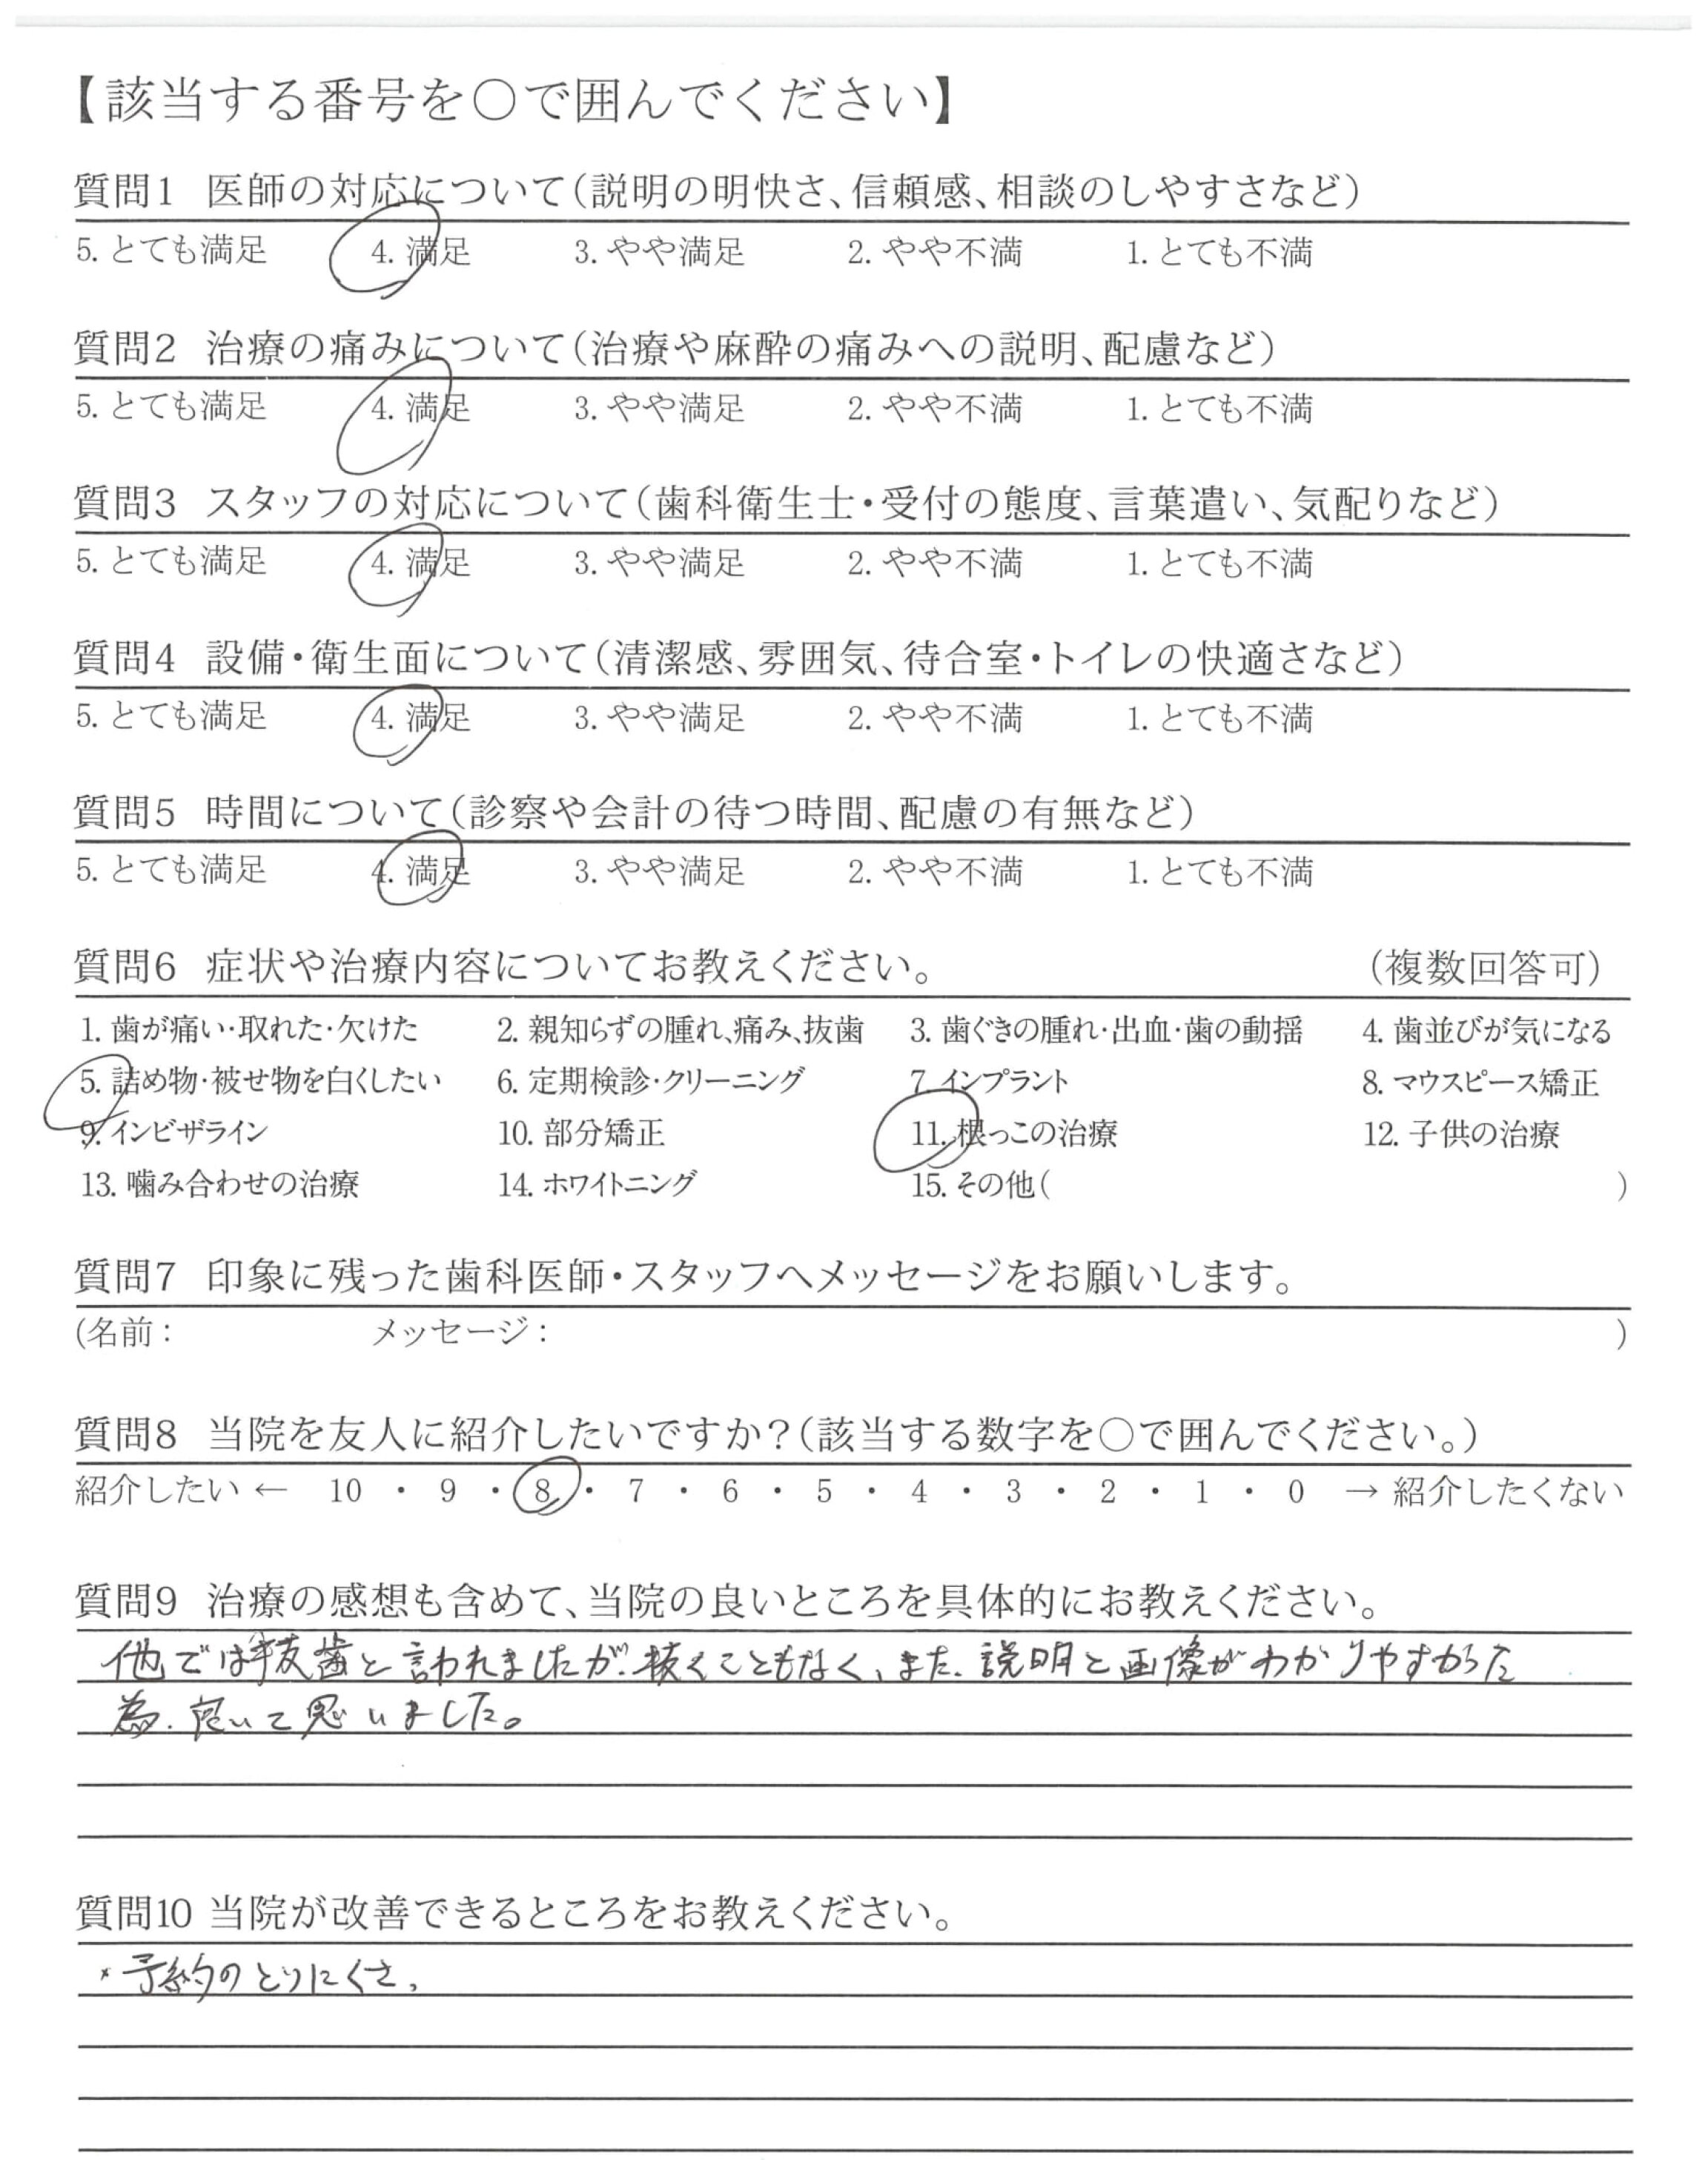 【該当する番号を○で囲んでください】
質問1 医師の対応について(説明の明快さ、信頼感、相談のしやすさなど)
5. とても満足 4. 満足 3. やや満足 2. やや不満 1. とても不満
質問2 治療の痛みについて(治療や麻酔の痛みへの説明、配慮など)
5. とても満足 4. 満足 3. やや満足 2. やや不満 1. とても不満
質問3 スタッフの対応について(歯科衛生士・受付の態度、言葉遣い、気配りなど)
5. とても満足 4. 満足 3. やや満足 2. やや不満 1. とても不満
質問4 設備・衛生面について(清潔感、雰囲気、待合室・トイレの快適さなど)
5. とても満足 4. 満足 3. やや満足 2. やや不満 1. とても不満
質問5 時間について(診察や会計の待つ時間、配慮の有無など)
5. とても満足 4. 満足 3. やや満足 2. やや不満 1. とても不満
質問6 症状や治療内容についてお教えください。 (複数回答可)
1. 歯が痛い・取れた・欠けた 2. 親知らずの腫れ、痛み、抜歯 3. 歯ぐきの腫れ・出血・歯の動揺 4. 歯並びが気になる
5. 詰め物・被せ物を白くしたい 6. 定期検診・クリーニング 7. インプラント 8. マウスピース矯正
9. インビザライン 10. 部分矯正 11. 根っこの治療 12. 子供の治療
13. 噛み合わせの治療 14. ホワイトニング 15. その他( )
質問7 印象に残った歯科医師・スタッフへメッセージをお願いします。
(名前: メッセージ: )
質問8 当院を友人に紹介したいですか?(該当する数字を○で囲んでください。)
紹介したい ← 10 ・ 9 ・ 8 ・ 7 ・ 6 ・ 5 ・ 4 ・ 3 ・ 2 ・ 1 ・ 0 → 紹介したくない
質問9 治療の感想も含めて、当院の良いところを具体的にお教えください。
他では抜歯と言われましたが、抜くこともなく、また、説明と画像がわかりやすかった
為、良いと思いました。
質問10 当院が改善できるところをお教えください。
・予約のとりにくさ。